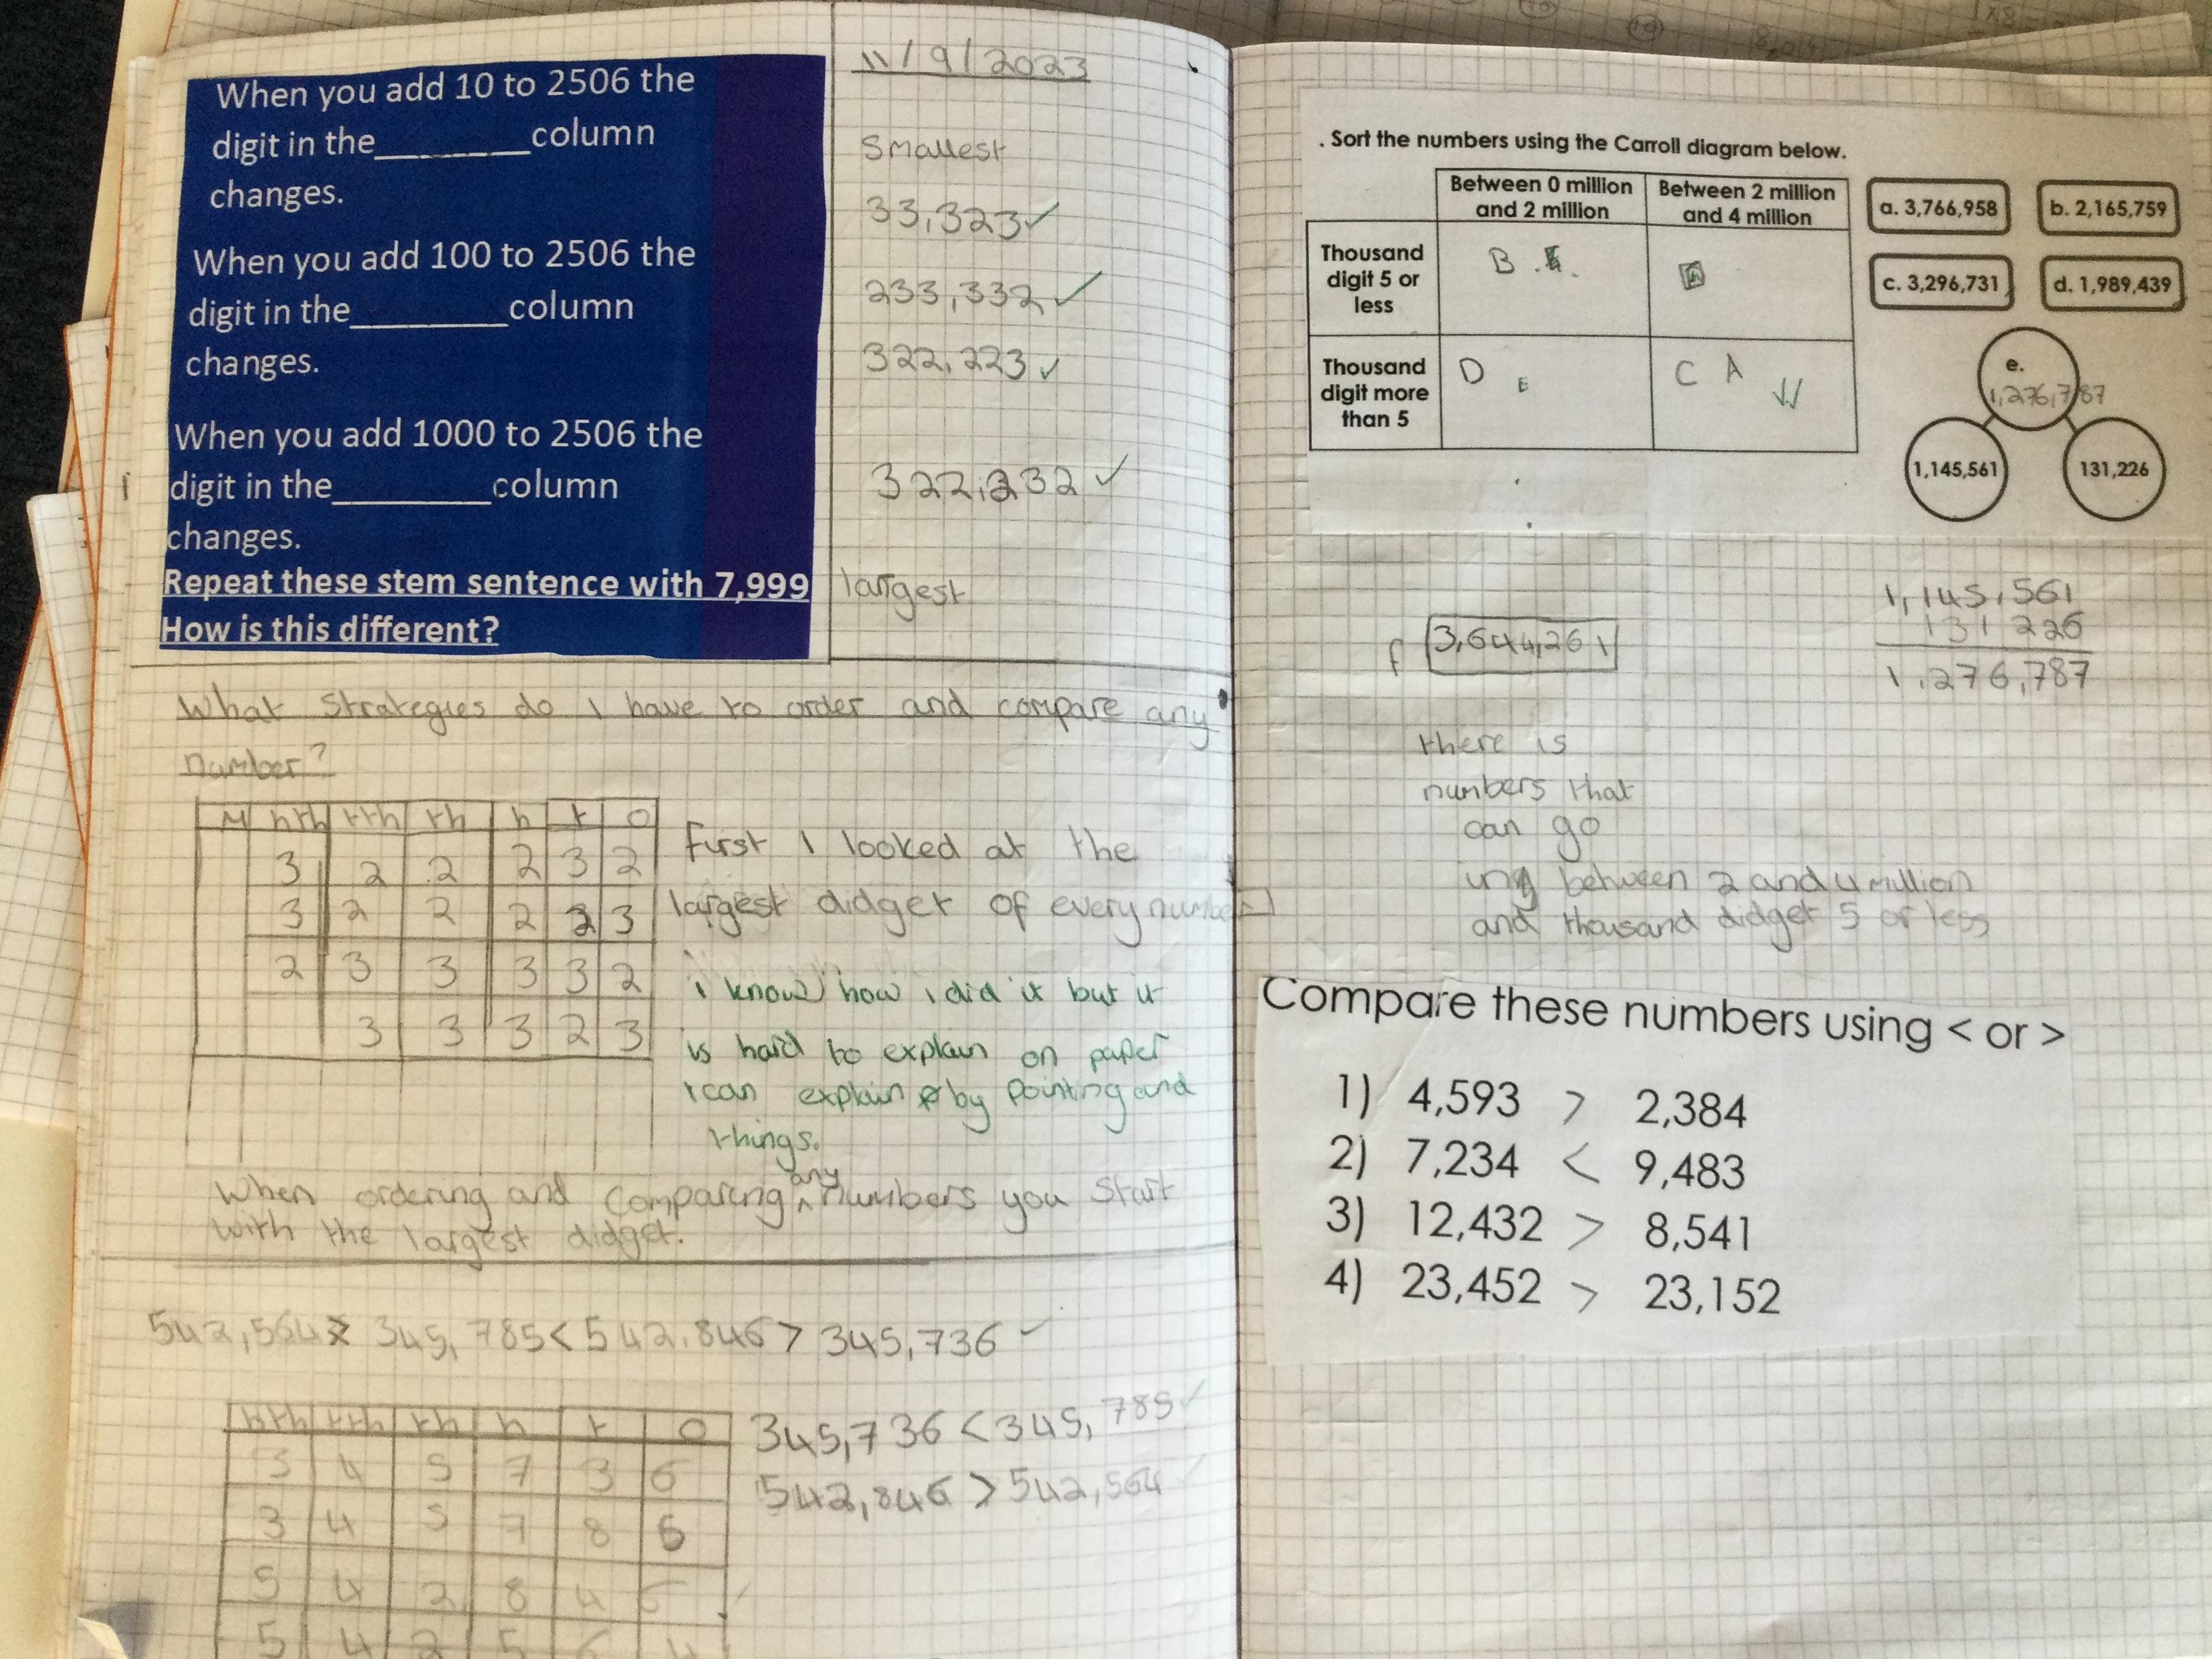 When you add 10 to 2506 the
digit in the________column
changes.
When you add 100 to 2506 the
digit in the________column
changes.
When you add 1000 to 2506 the
digit in the________column
changes.
Repeat these stem sentence with 7,999
How is this different?
11/9/2023
Smallest
33,323✓
233,332✓
322,223✓
322,232✓
largest
What Strategies do I have to order and compare any
number?
M hth tth th h t o
3 2 2 2 3 2
3 2 2 2 2 3
2 3 3 3 3 2
3 3 3 2 3
First I looked at the
largest didget of every number
i know how i did it but it
is hard to explain on paper
I can explain by Pointing and
things.
When ordering and comparing any numbers you Start
with the largest didget.
542,564 > 345,785 < 542,846 > 345,736 ✓
hth tth th h t o
3 4 5 7 3 6
3 4 5 7 8 5
5 4 2 8 4 6
5 4 2 5 6 4
345,736 < 345,785 ✓
542,846 > 542,564 ✓
. Sort the numbers using the Carroll diagram below.
Between 0 million and 2 million
Between 2 million and 4 million
Thousand digit 5 or less
B
Thousand digit more than 5
D E
C A ✓✓
a. 3,766,958
b. 2,165,759
c. 3,296,731
d. 1,989,439
e.
1,276,787
1,145,561
131,226
f 3,644,261
1,145,561
131 226
1,276,787
there is
numbers that
can go
ing between 2 and 4 million
and thousand didget 5 or less
Compare these numbers using < or >
1) 4,593 > 2,384
2) 7,234 < 9,483
3) 12,432 > 8,541
4) 23,452 > 23,152